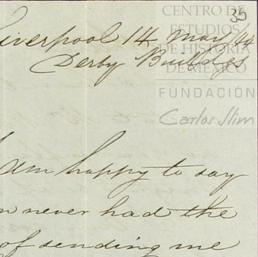 CENTRO DE
ESTUDIOS
DE HISTORIA
DE MÉXICO
FUNDACIÓN
Carlos Slim
35
Liverpool 14 May
Derby Buildgs
am happy to say
never had the
of sending me